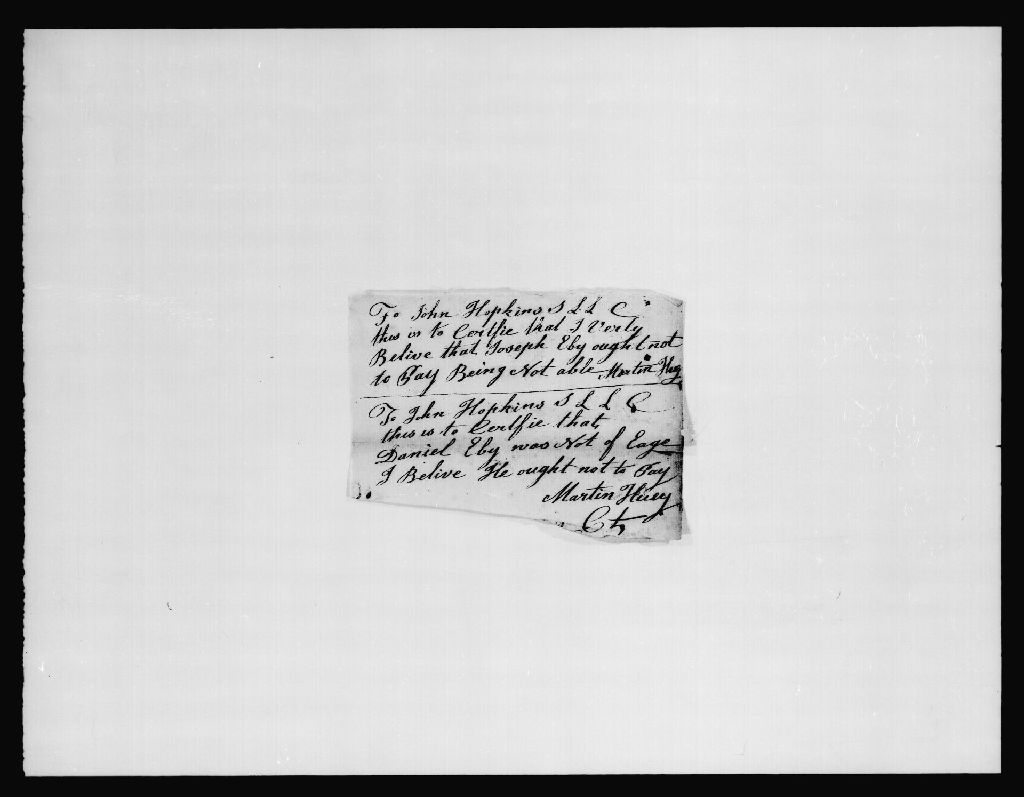 To John Hopkins S L L C
this is to Certfie that I Verly
Belive that Joseph Eby ought not
to Pay Being Not able Martin Huey
To John Hopkins S L L C
this is to Certfie that
Daniel Eby was Not of Eage
I Belive He ought not to Pay
Martin Huey